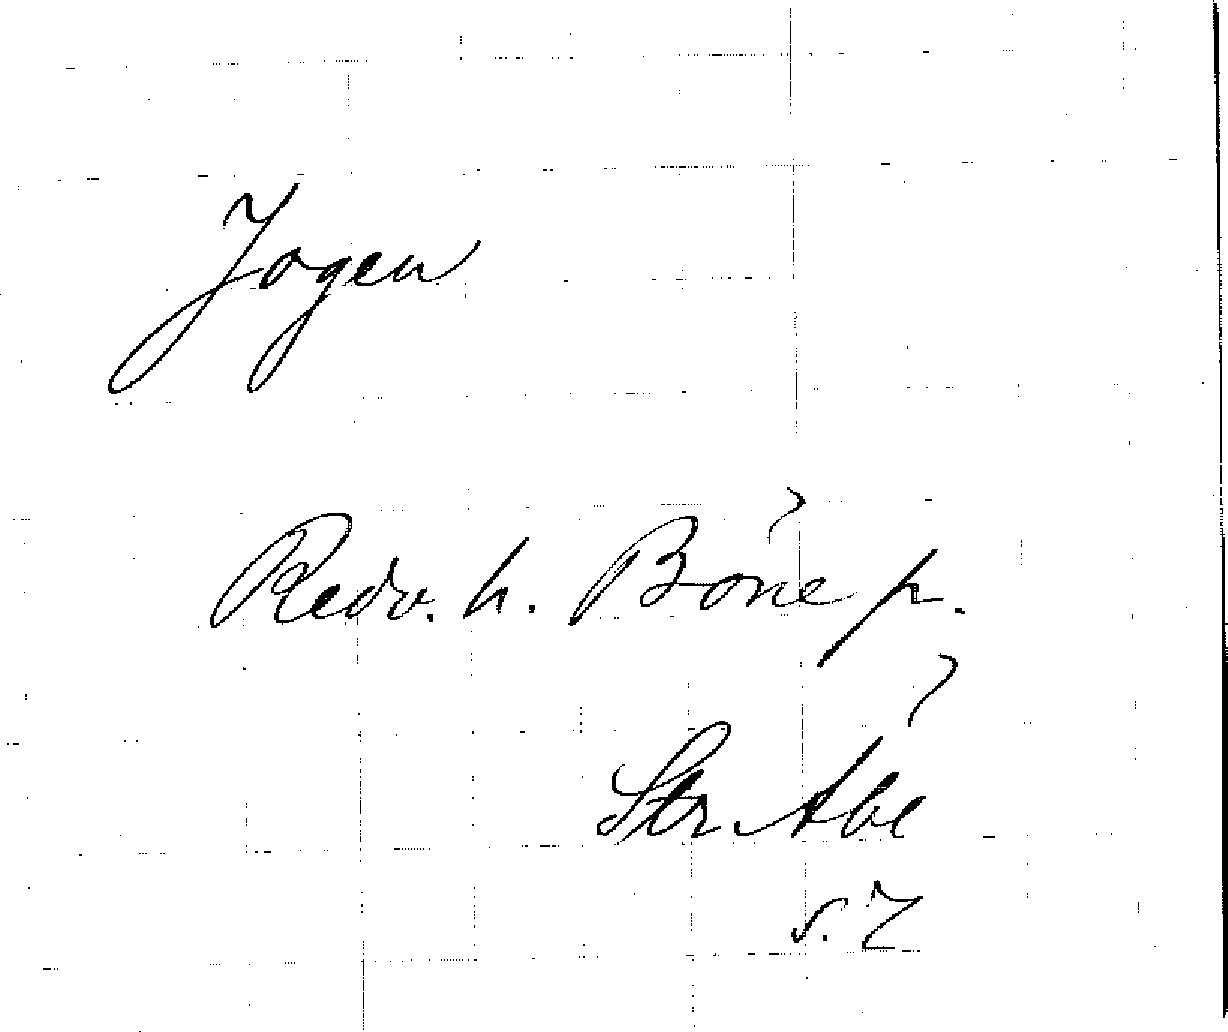 Jogen
Redv. h. Bóne p.
Str. Abé
s. 7